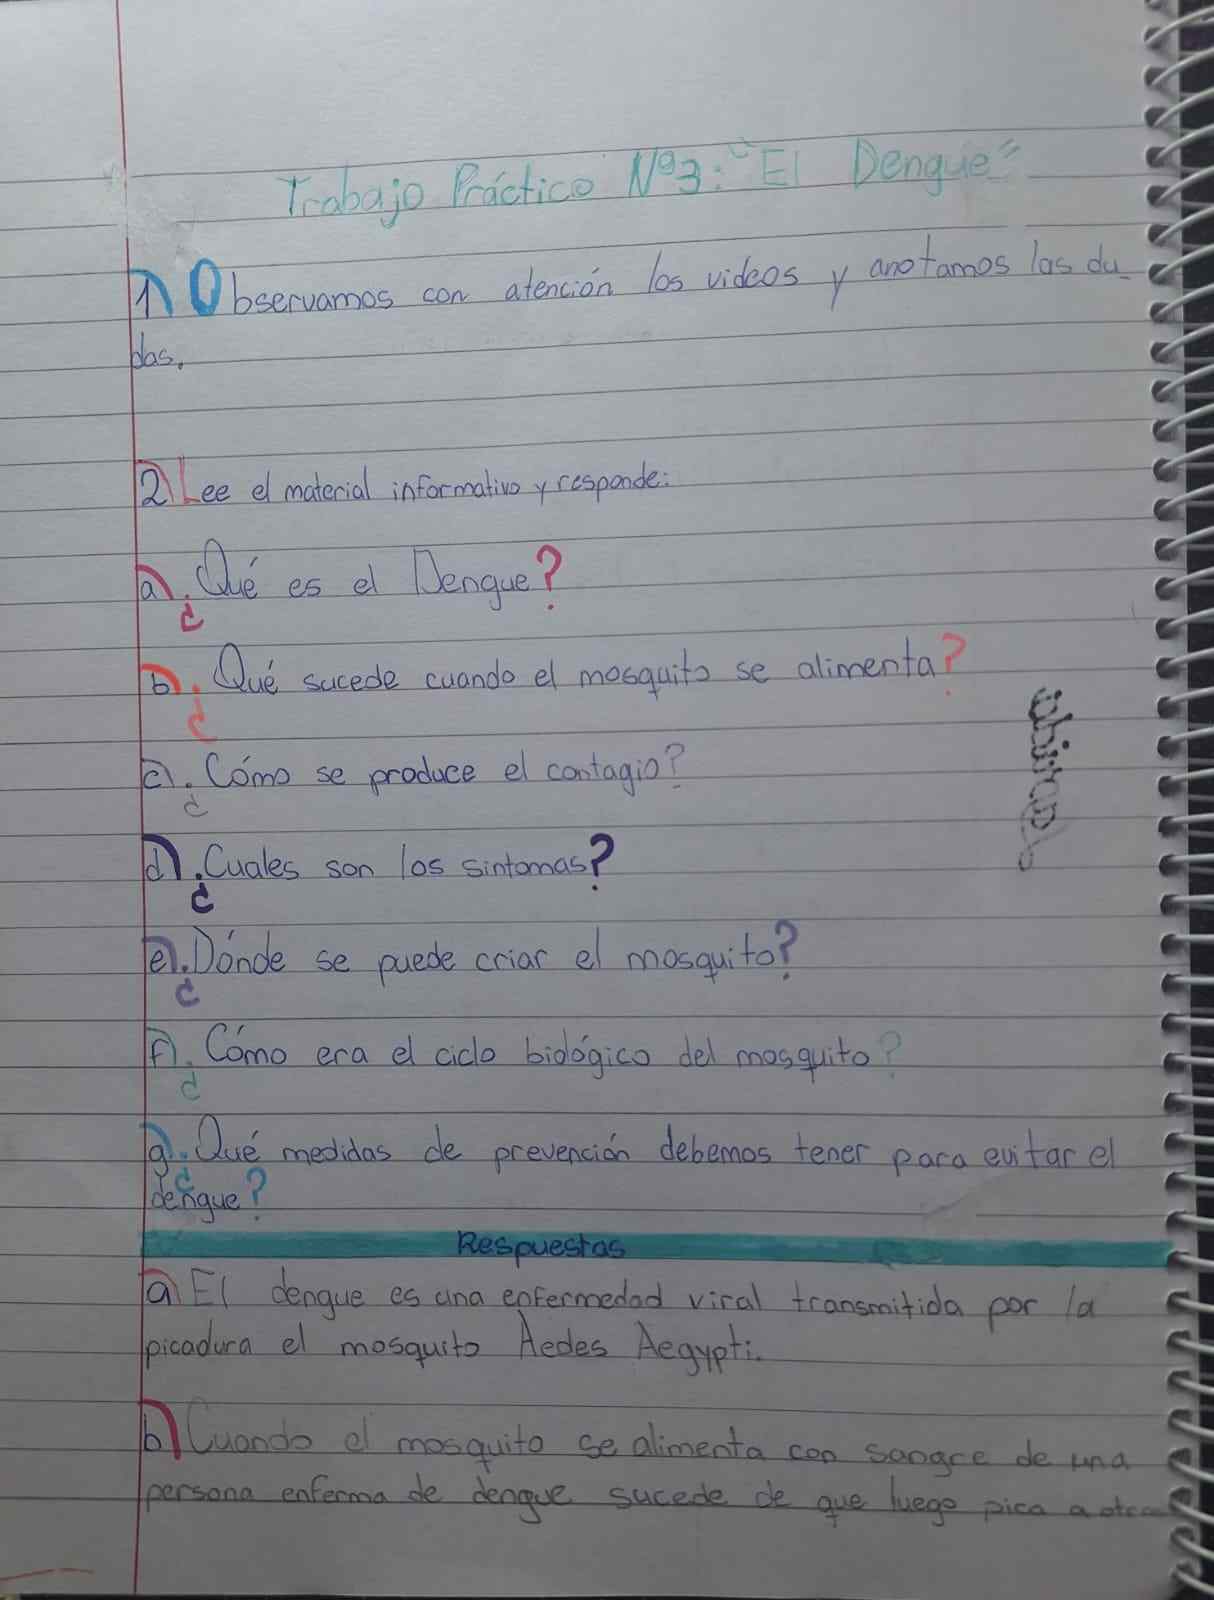 Trabajo Práctico Nº3: "El Dengue"
1) Observamos con atención los videos y anotamos las du
das.
2) Lee el material informativo y responde:
a) ¿Qué es el Dengue?
b) ¿Qué sucede cuando el mosquito se alimenta?
c) ¿Cómo se produce el contagio?
d) ¿Cuales son los sintomas?
e) ¿Dónde se puede criar el mosquito?
f) ¿Cómo era el ciclo biológico del mosquito?
g) ¿Qué medidas de prevención debemos tener para evitar el
dengue?
Respuestas
a) El dengue es una enfermedad viral transmitida por la
picadura el mosquito Aedes Aegypti.
b) Cuando el mosquito se alimenta con sangre de una
persona enferma de dengue sucede de que luego pica a otra